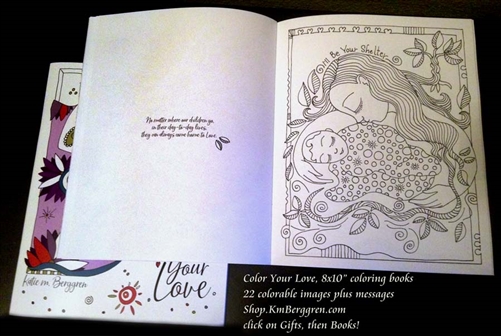 No matter where our children go,
in their day-to-day lives,
they can always come home to Love.
I'll Be Your Shelter
Katie m. Berggren
Your
Love
Color Your Love, 8x10" coloring books
22 colorable images plus messages
Shop.KmBerggren.com
click on Gifts, then Books!